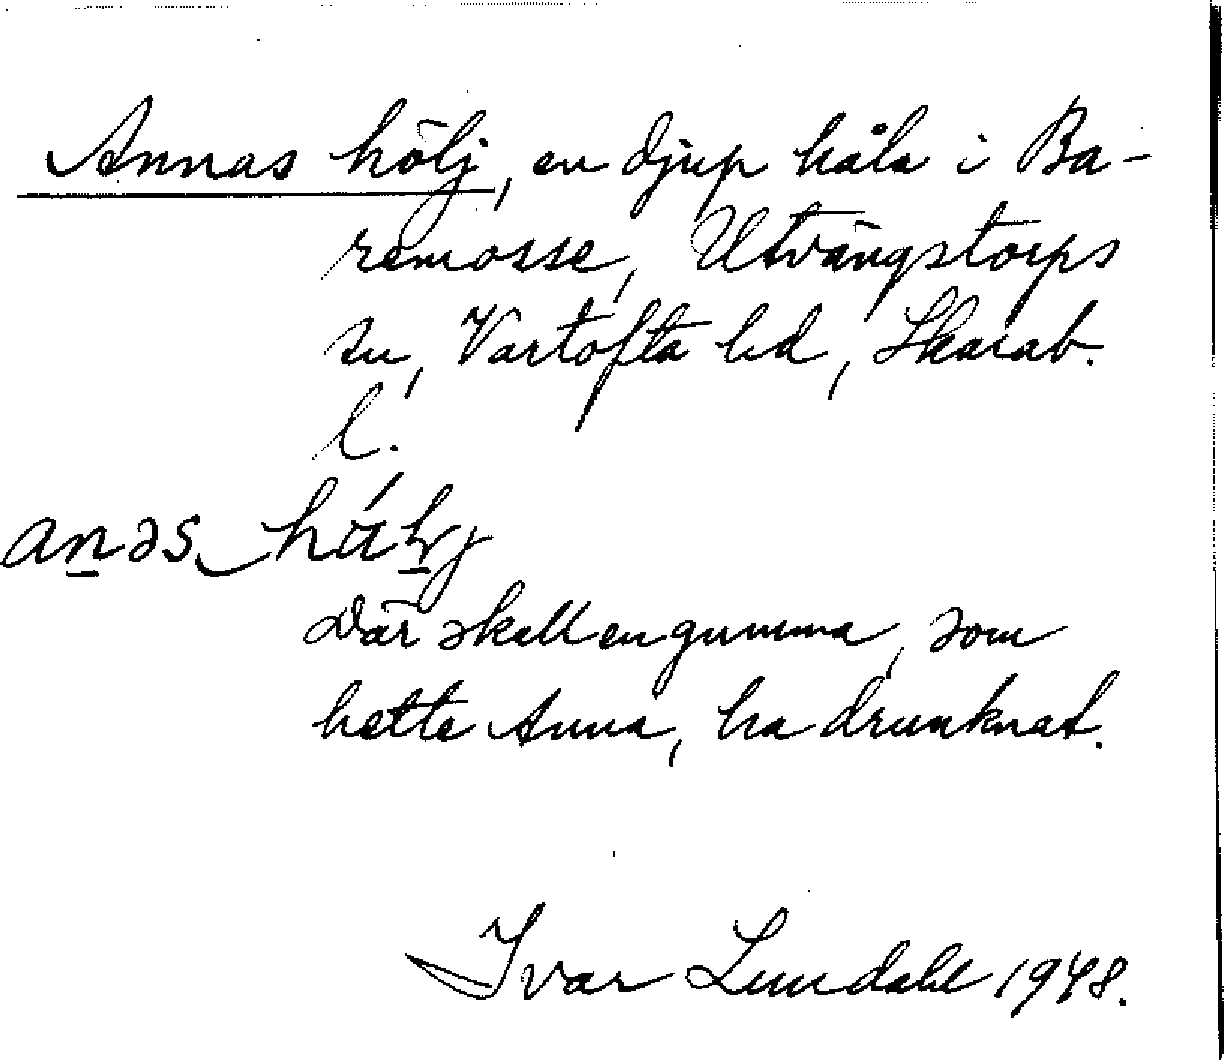 Annas hölj, en djup håla i Ba-
remosse, Utvängstorps
sn, Vartofta hd, Skarab.
l.
anəs
Där skall en gumma, som
hette Anna, ha drunknat.
Ivar Lundahl 1948.